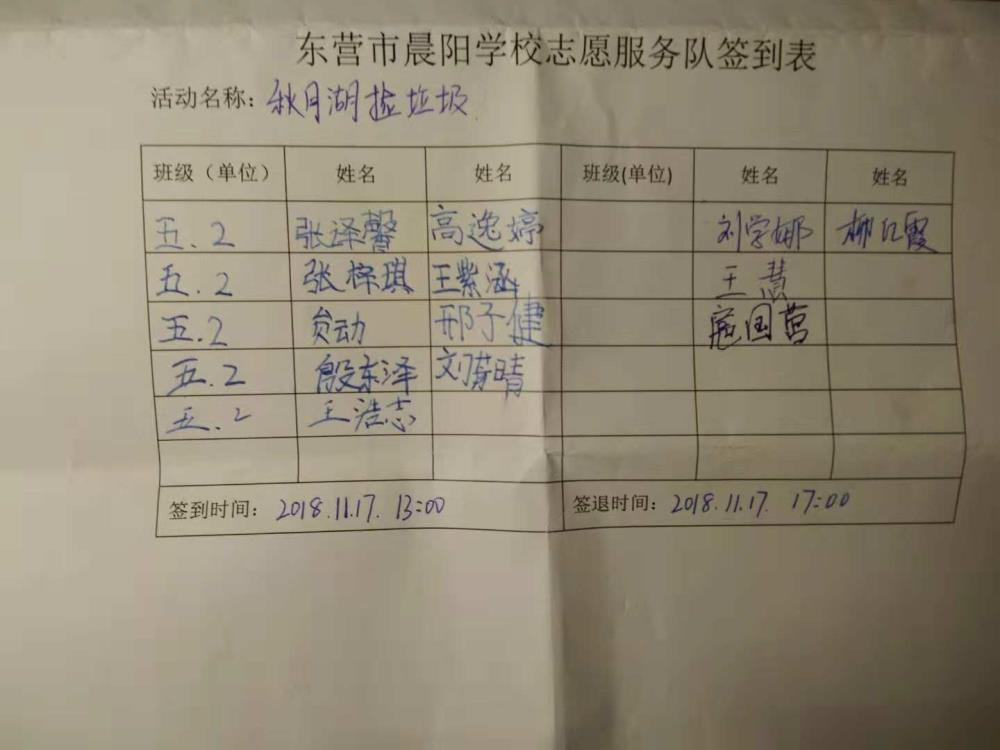 东营市晨阳学校志愿服务队签到表
活动名称：秋月湖捡垃圾
班级（单位） 姓名 姓名 班级(单位) 姓名 姓名
五.2 张译馨 高逸婷 刘学娜 柳红霞
五.2 张梓琪 王紫涵 王慧
五.2 贠动 邢子健 寇国营
五.2 殷东泽 刘芽晴
五.2 王浩志
签到时间：2018.11.17. 13:00 签退时间：2018.11.17. 17:00